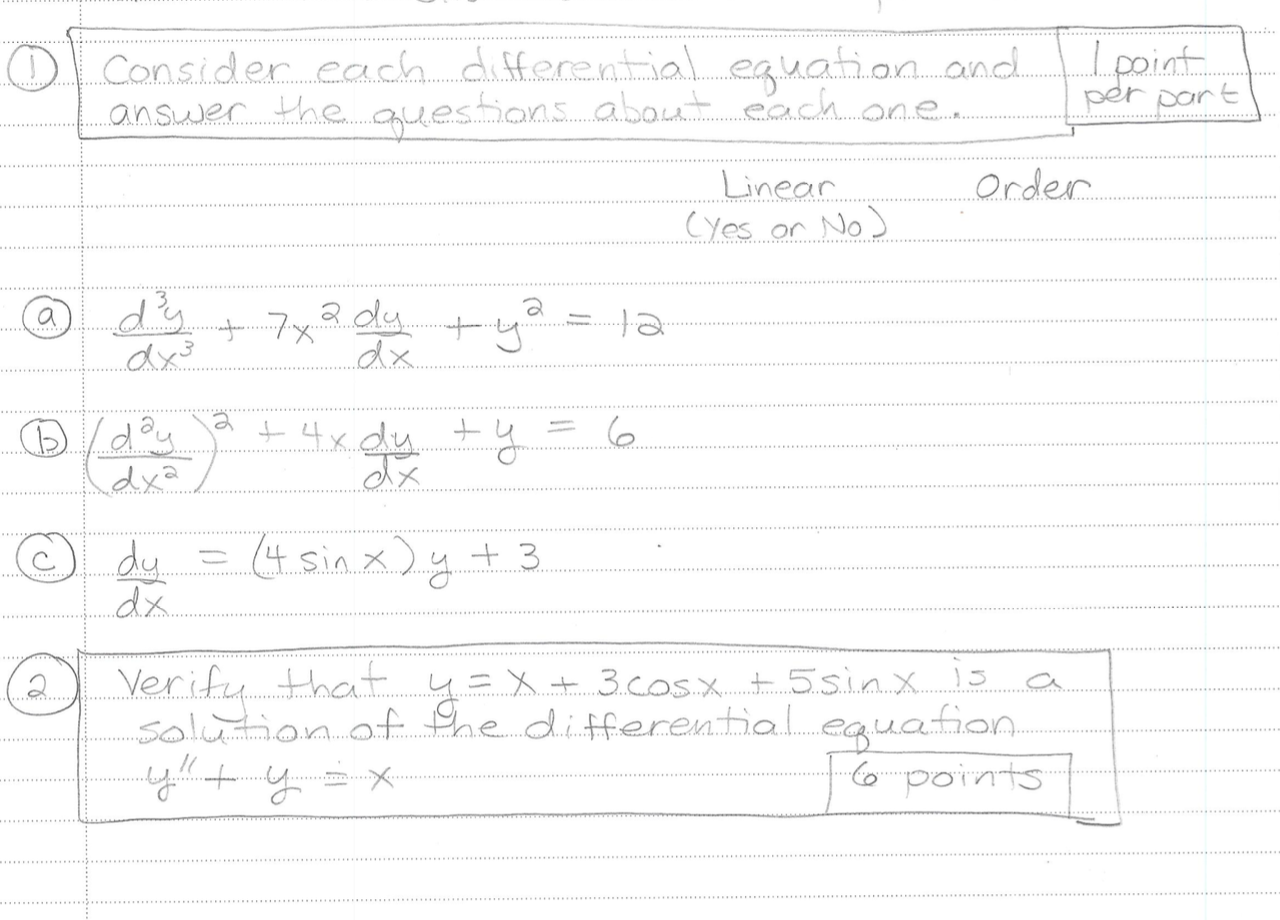 ① Consider each differential equation and 1 point
answer the questions about each one. per part
Linear Order
(Yes or No)
ⓐ d³y/dx³ + 7x² dy/dx + y² = 12
ⓑ (d²y/dx²)² + 4x dy/dx + y = 6
ⓒ dy/dx = (4 sin x) y + 3
② Verify that y = x + 3cosx + 5sinx is a
solution of the differential equation
y″ + y = x 6 points